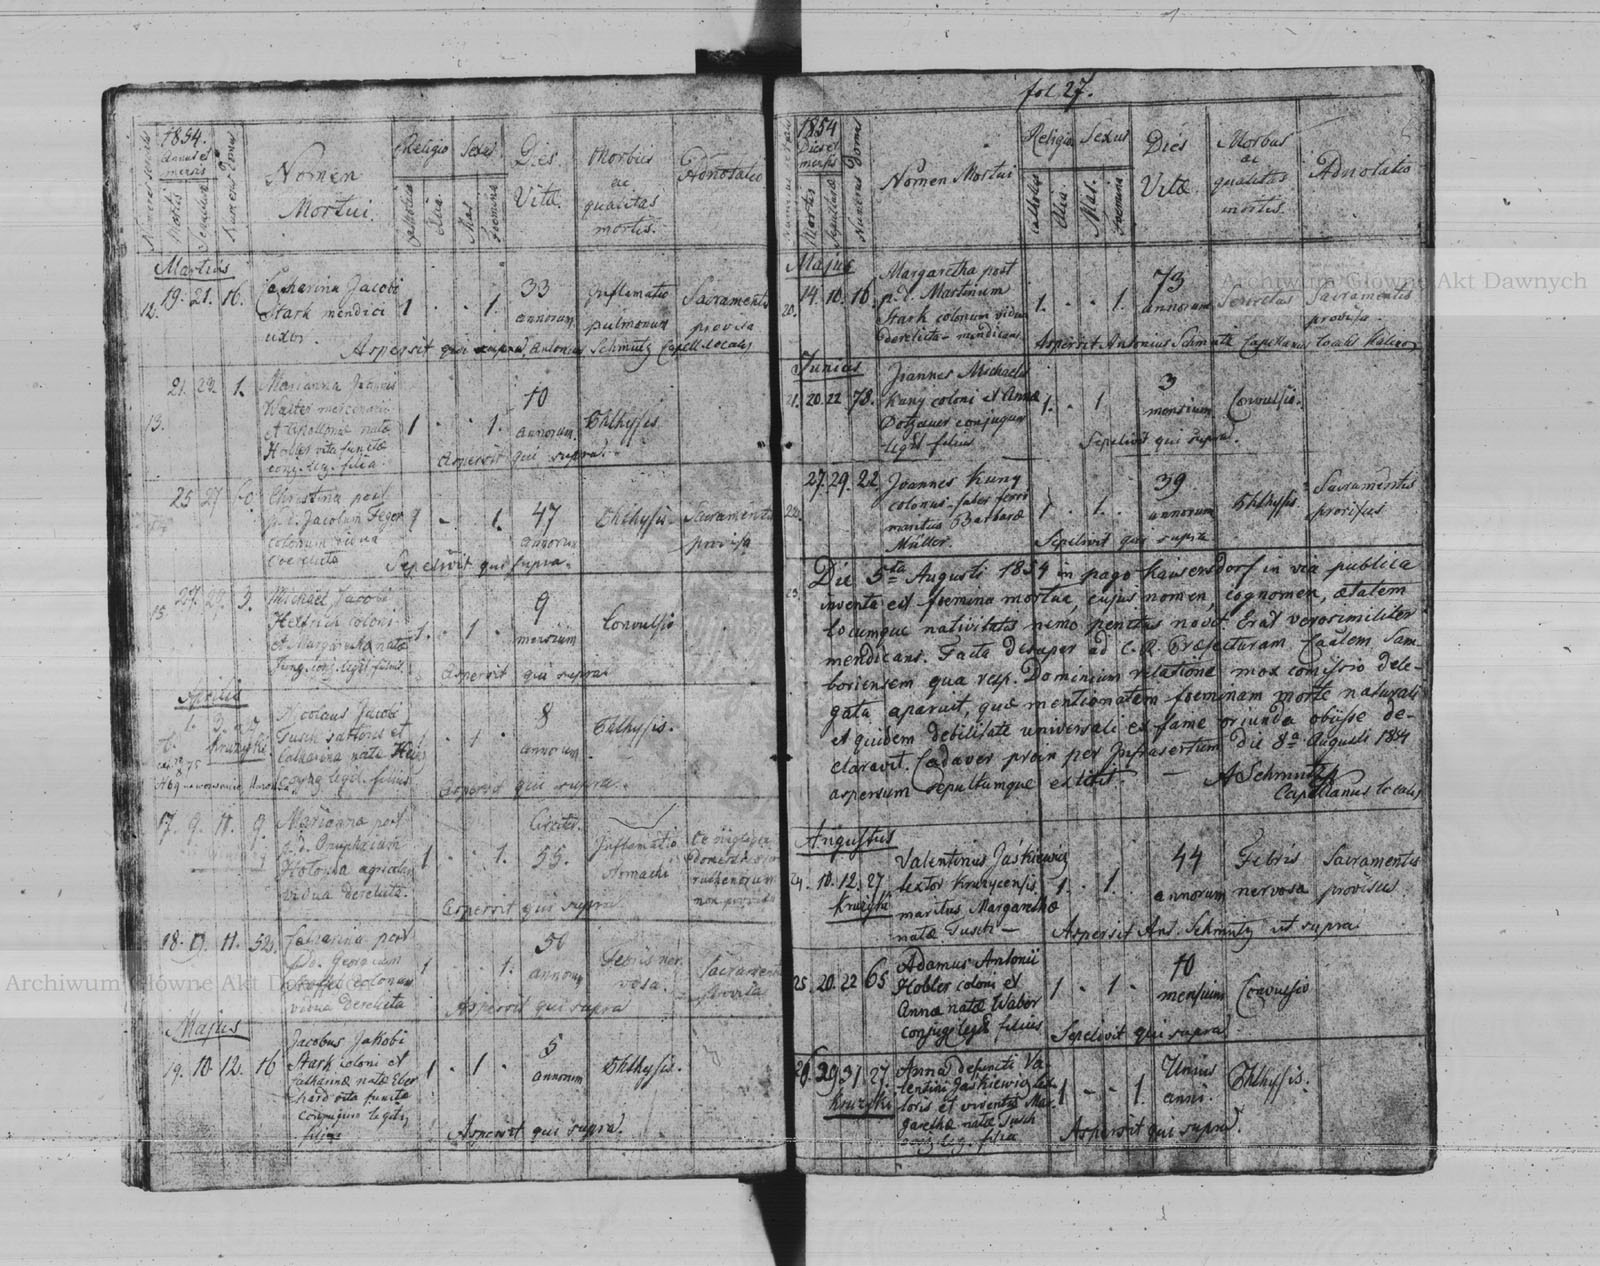 1854.
Annus et
mensis
Mortis
Numerus Domus
Nomen
Mortui.
Religio
Catholica
Alia.
Sexus
Mas.
Foemina
Dies
Vitæ.
Morbus
ac
qualitas
mortis.
Adnotatio
Martius
12. 19. 21. 16.
Catharina Jacobi
Stark mendici
uxor.
1 . . 1.
33
annorum
Inflamatio
pulmonum
Sacramentis
provisa
Aspersit qui supra Antonius Schmutz Capell. localis
13. 21. 23. 1.
Marianna Joannis
Walter mercenarii
et Apollonia nata
Holler vita functæ
conj. leg. filia.
1 . . 1.
10
annorum.
Phthysis
Aspersit qui supra.
25 27 60.
Christina post
p. d. Jacobum Feger
colonum vidua
derelicta
1.
47
annorum
Phthysis
Sacramentis
provisa
Sepelivit qui supra.
15 27. 29. 3.
Michael Jacobi
Hettrich coloni
et Margaritha nata
Jung conj. legit. filius.
1. . 1 .
9
mensium
Convulsio
Aspersit qui supra
Aprilis
1. 3.
Kruzyki
Nicolaus Jacobi
Tusch sartoris et
Catharina nata
conjug legit. filius
1 .
8
annorum
Phthysis.
Aspersit qui supra.
17. 9. 11. 9.
Marianna post
p. d. Onuphrium
Hotowka agricolam
vidua derelicta.
1 . . 1.
Circiter.
55.
Inflamatio
stomachi
ruthenorum
non provisa
Aspersit qui supra
18. 9. 11. 52.
Catharina post
p. d. Georgium
colonum
vidua derelicta
1 . . 1.
50
annorum
Febris ner-
vosa.
Sacramentis
provisa
Aspersit qui supra
Majus
19. 10. 12. 16
Jacobus Jakobi
Stark coloni et
Catharinæ natæ Eber
hard vita functæ
conjugum legit.
filius
1 . 1 .
5
annorum
Phthysis.
Aspersit qui supra.
fol 27.
1854
Dies et
mensis
Mortis
Sepulturæ
Numerus Domus
Nomen Mortui
Religio
Catholica
Alia.
Sexus
Mas.
Foemina
Dies
Vitæ
Morbus
ac
qualitas
mortis.
Adnotatio
Majus
20. 14. 16. 16.
Margaretha post
p. d. Martinum
Stark colonum vidua
derelicta - mendicans
1. . . 1.
73
annorum
Senectus
Sacramentis
provisa
Aspersit Antonius Schmutz Capellanus localis
Junius
21. 20. 22 78.
Joannes Michaelis
Kuny coloni et Annæ
Dotzauer conjugum
legit filius
1. . 1
3
mensium
Convulsio.
Sepelivit qui supra.
22. 27. 29. 22
Joannes Kuny
colonus - faber ferri
maritus Barbaræ
Müller.
1 . 1.
39
annorum
Phthysis
Sacramentis
provisus
Sepelivit qui supra
23. Die 5ta Augusti 1854 in pago Kaisersdorf in via publica
inventa est foemina mortua, cujus nomen, cognomen, ætatem
locumque nativitatis nemo penitus novit. Erat verosimiliter
mendicans. Facta desuper ad C. R. Præfecturam Caalem Sam-
boriensem qua resp. Dominium relatione mox comissio dele-
gata aparuit, quæ mentionatam foeminam morte naturali
et quidem debilitate universali ex fame oriunda obiisse de-
claravit. Cadaver proin per Infrasertum die 8a Augusti 1854
aspersum sepultumque extitit. — ASchmutz
Capellanus localis
Augustus
24. 10. 12. 27
Kruzyki
Valentinus Jaśkiewicz
textor Kruzycensis
maritus Margarethæ
natæ Tusch —
1. . 1.
44
annorum
Febris
nervosa
Sacramentis
provisus
Aspersit Ant. Schmutz ut supra
25. 20. 22 65
Adamus Antonii
Hobler coloni et
Annæ natæ Wabor
conjug legit filius
1 . 1 .
10
mensium
Convulsio
Sepelivit qui supra
26. 29 31. 27.
Kruzyki
Anna defuncti Va
lentini Jaśkiewicz tex
toris et viventis Mar
garethæ natæ Tusch
conj. leg. filia
1 - - 1.
Unius
anni.
Phthysis.
Aspersit qui supra.
Archiwum Główne Akt Dawnych
Archiwum Główne Akt Dawnych